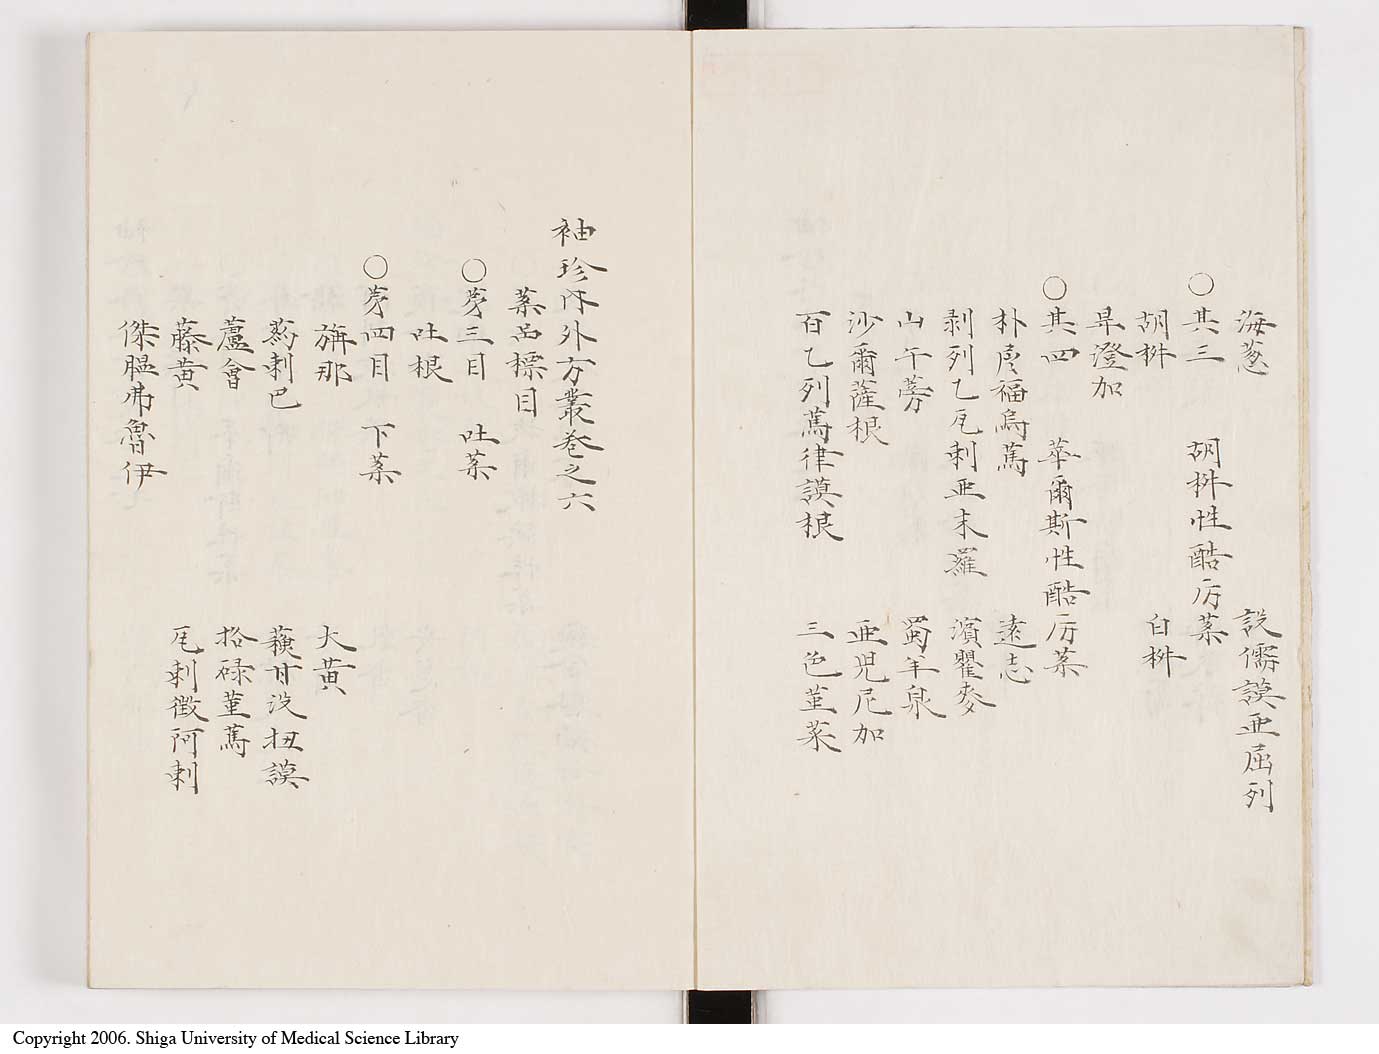 海葱 設儒謨亜屈列
○其三 胡椒性酷厉薬
胡椒 白椒
畢澄加
○其四 華爾斯性酷厉薬
朴屈福烏蔦 遠志
剥列乙瓦剌亜末羅 濱瞿麥
山牛蒡 蜀羊泉
沙爾薩根 亜兒尼加
百乙列蔦律謨根 三色菫菜
袖珍内外方叢巻之六
薬品標目
○第三目 吐薬
吐根
○第四目 下薬
旃那 大黄
葯剌巴 蘓甘没扭謨
蘆會 格碌菫蔦
藤黄 瓦剌徴阿剌
傑膃弗魯伊
Copyright 2006. Shiga University of Medical Science Library